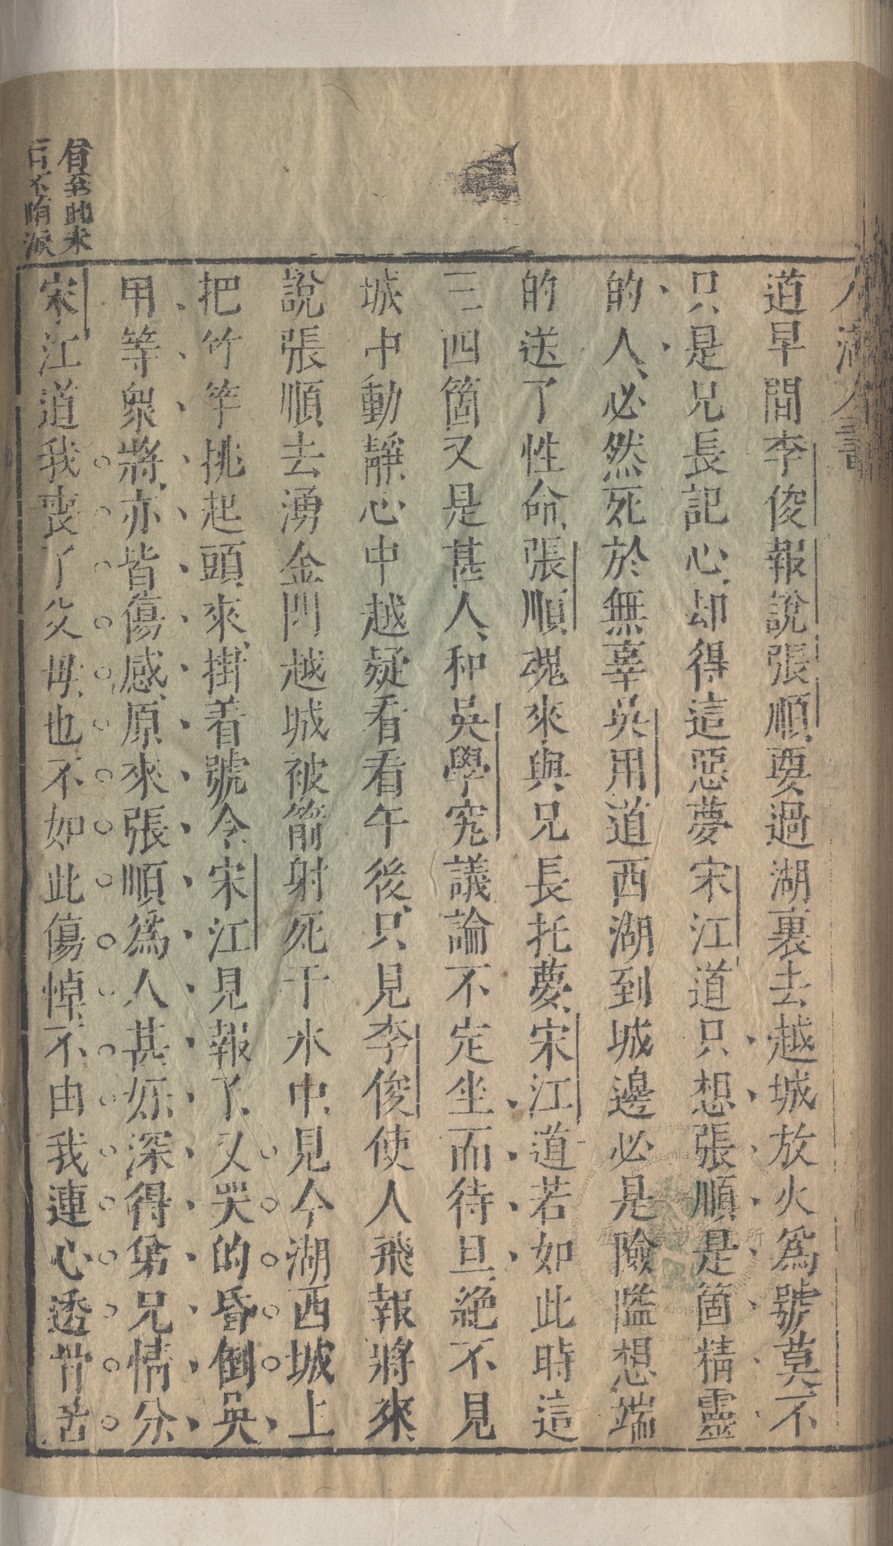 道早間李俊報說張順要過湖裏去越城放火爲號莫不
只是兄長記心却得這惡夢宋江道只想張順是箇精靈
的人必然死於無辜吳用道西湖到城邊必是險隘想端
的送了性命張順魂來與兄長托夢宋江道若如此時這
三四箇又是甚人和吳學究議論不定坐而待旦絕不見
城中動靜心中越疑看看午後只見李俊使人飛報將來
說張順去湧金門越城被箭射死于水中見今湖西城上
把竹竿挑起頭來掛着號令宋江見報了又哭的昏倒吳
用等衆將亦皆傷感原來張順爲人甚好深得弟兄情分
宋江道我喪了父母也不如此傷悼不由我連心透骨苦
看至此未
有不墮淚